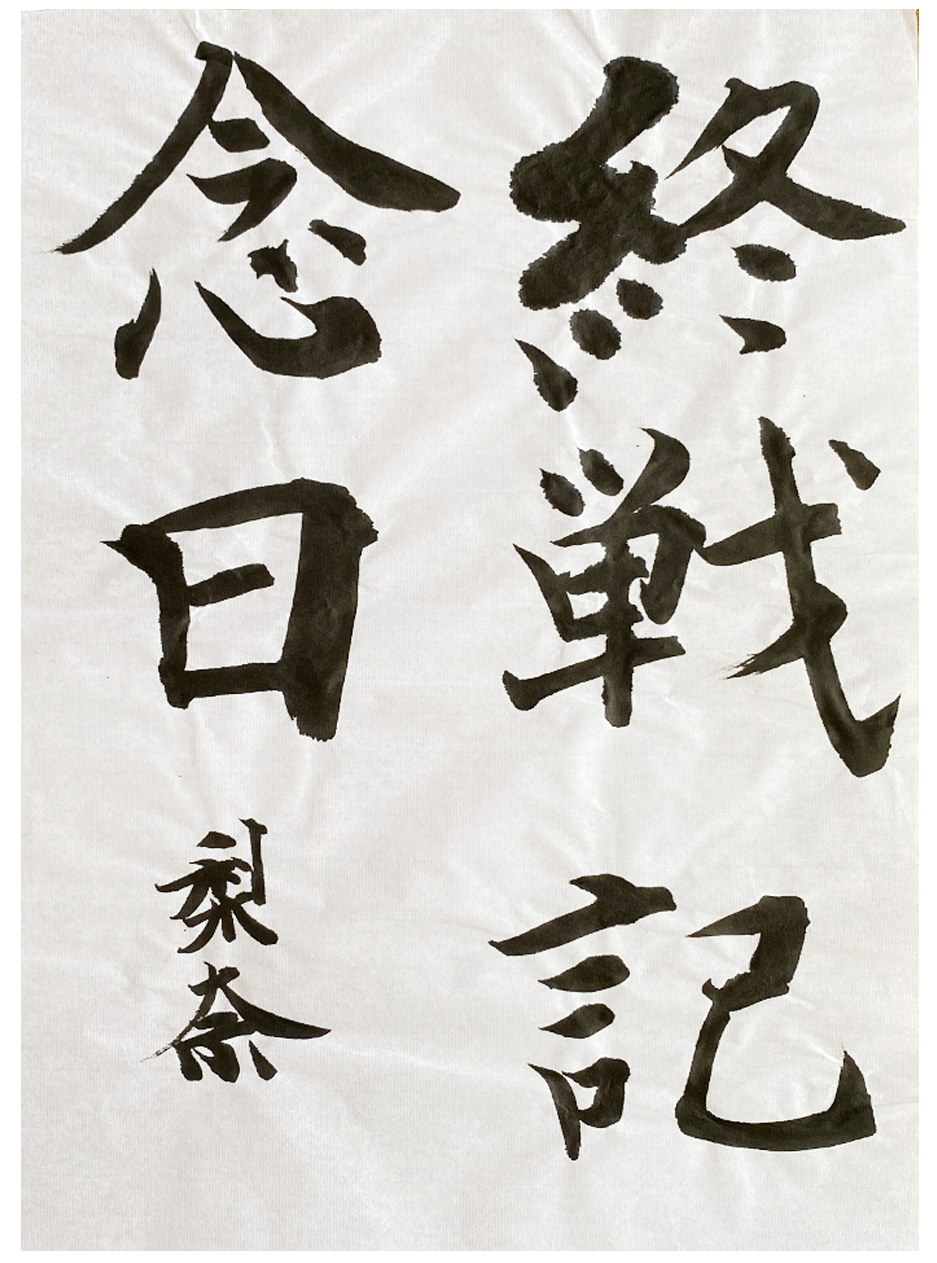 終戦記
念日
梨奈